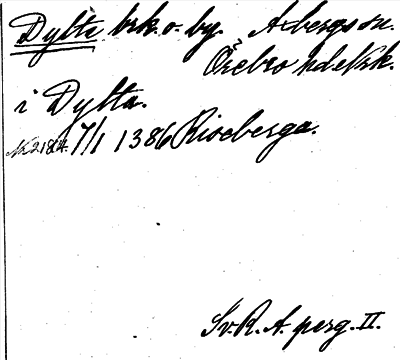 Dylta brk. o. by. Axbergs sn.
Örebro hd. Nrk.
i Dylta.
7/1 1386 Riseberga.
Sv. R. A. perg. II.